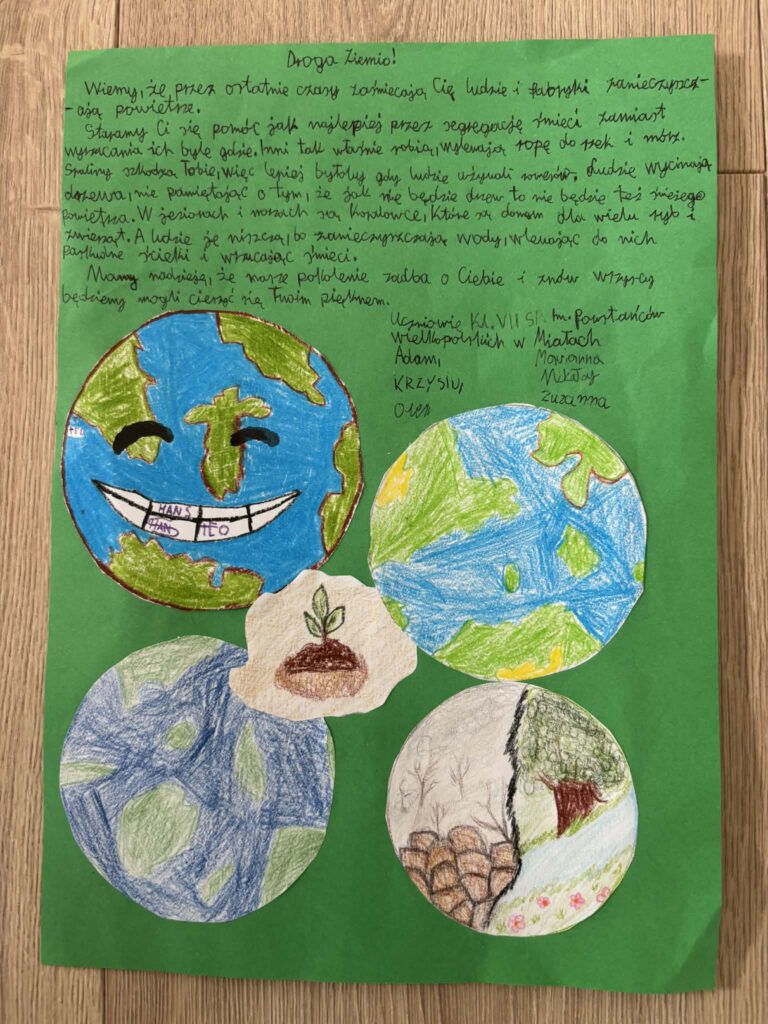 Droga Ziemio!
Wiemy, że przez ostatnie czasy zaśmiecają Cię ludzie i fabryki zanieczyszcz-
-ają powietrze.
Staramy Ci się pomóc jak najlepiej przez segregację śmieci zamiast
wyrzucania ich byle gdzie. Inni tak właśnie robią, wylewają ropę do rzek i mórz.
Spaliny szkodzą Tobie, więc lepiej byłoby gdy ludzie używali rowerów. Ludzie wycinają
drzewa, nie pamiętając o tym, że jak nie będzie drzew to nie będzie też świeżego
powietrza. W jeziorach i morzach są Koralowce, które są domem dla wielu ryb i
zwierząt. A ludzie je niszczą, bo zanieczyszczają wody, wlewając do nich
paskudne ścieki i wrzucając śmieci.
Mamy nadzieję, że nasze pokolenie zadba o Ciebie i znów wszyscy
będziemy mogli cieszyć się Twoim pięknem.
Uczniowie Kl. VII SP. im. Powstańców
Wielkopolskich w Miałach
Adam, Marianna
KRZYSIU, Mikołaj
Olek Zuzanna
HANS
HAN TEO